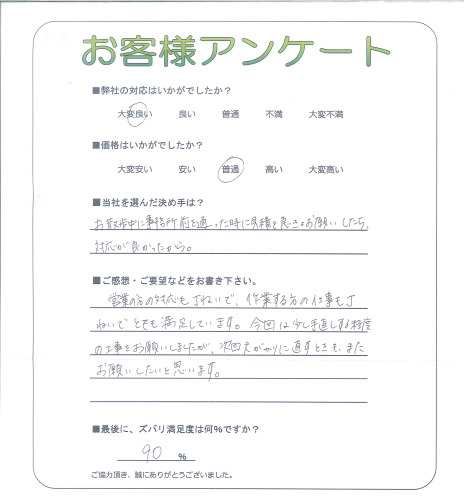 お客様アンケート
■弊社の対応はいかがでしたか？
大変良い 良い 普通 不満 大変不満
■価格はいかがでしたか？
大変安い 安い 普通 高い 大変高い
■当社を選んだ決め手は？
お散歩中に事務所前を通った時に見積をお願いしたら、
対応が良かったから。
■ご感想・ご要望などをお書き下さい。
営業の方の対応も丁ねいで、作業する方の仕事も丁
ねいでとても満足しています。今回は少し手直しする程度
の工事をお願いしましたが、次回大がかりに直すときも、また
お願いしたいと思います。
■最後に、ズバリ満足度は何％ですか？
90 ％
ご協力頂き、誠にありがとうございました。